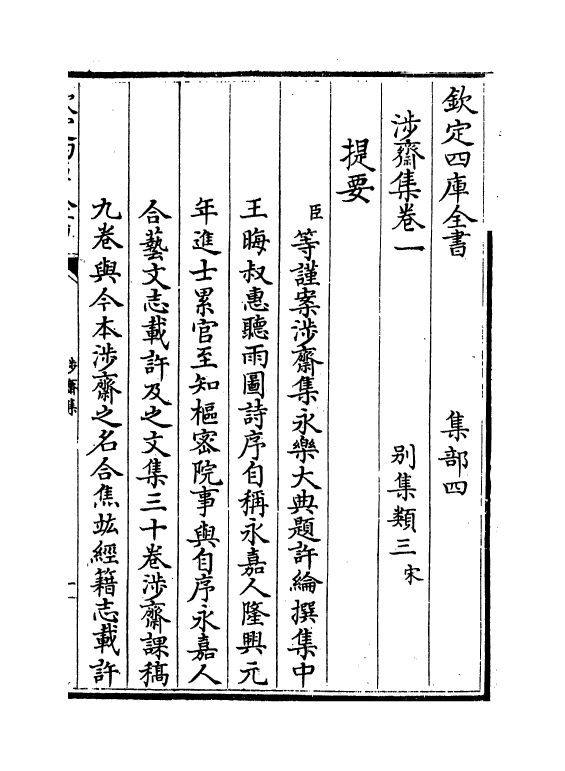 欽定四庫全書　集部四
涉齋集卷一　別集類三宋
提要
臣等謹案涉齋集永樂大典題許綸撰集中
王晦叔惠聽雨圖詩序自稱永嘉人隆興元
年進士累官至知樞密院事與自序永嘉人
合藝文志載許及之文集三十卷涉齋課稿
九卷與今本涉齋之名合焦竑經籍志載許
涉齋集
一